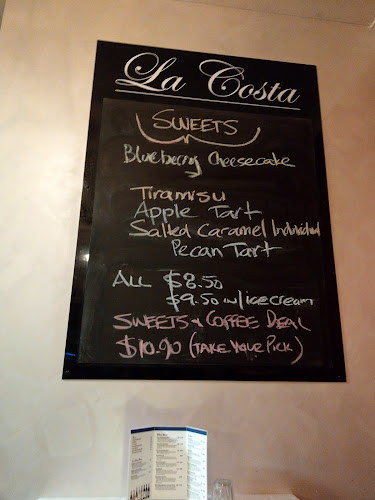 La Costa
SWEETS
Blueberry Cheesecake
Tiramisu
Apple Tart
Salted Caramel Individual
Pecan Tart
ALL $8.50
$9.50 w/ice cream
SWEETS & COFFEE DEAL
$10.90 (TAKE YOUR PICK)